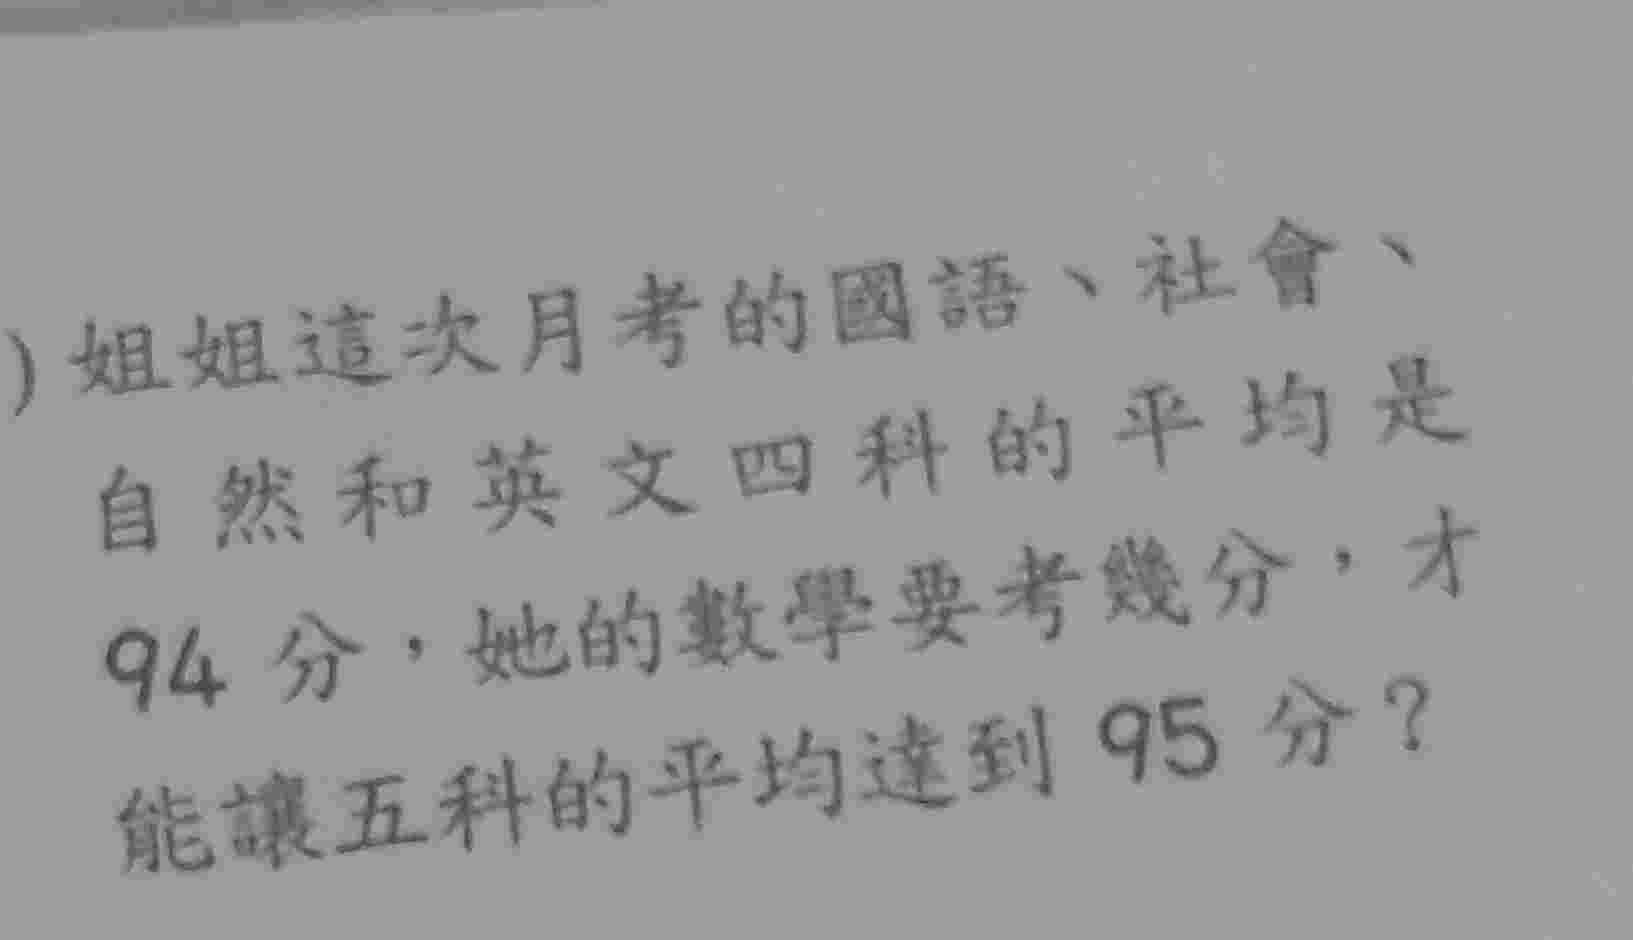 )姐姐這次月考的國語、社會、
自然和英文四科的平均是
94 分，她的數學要考幾分，才
能讓五科的平均達到 95 分？